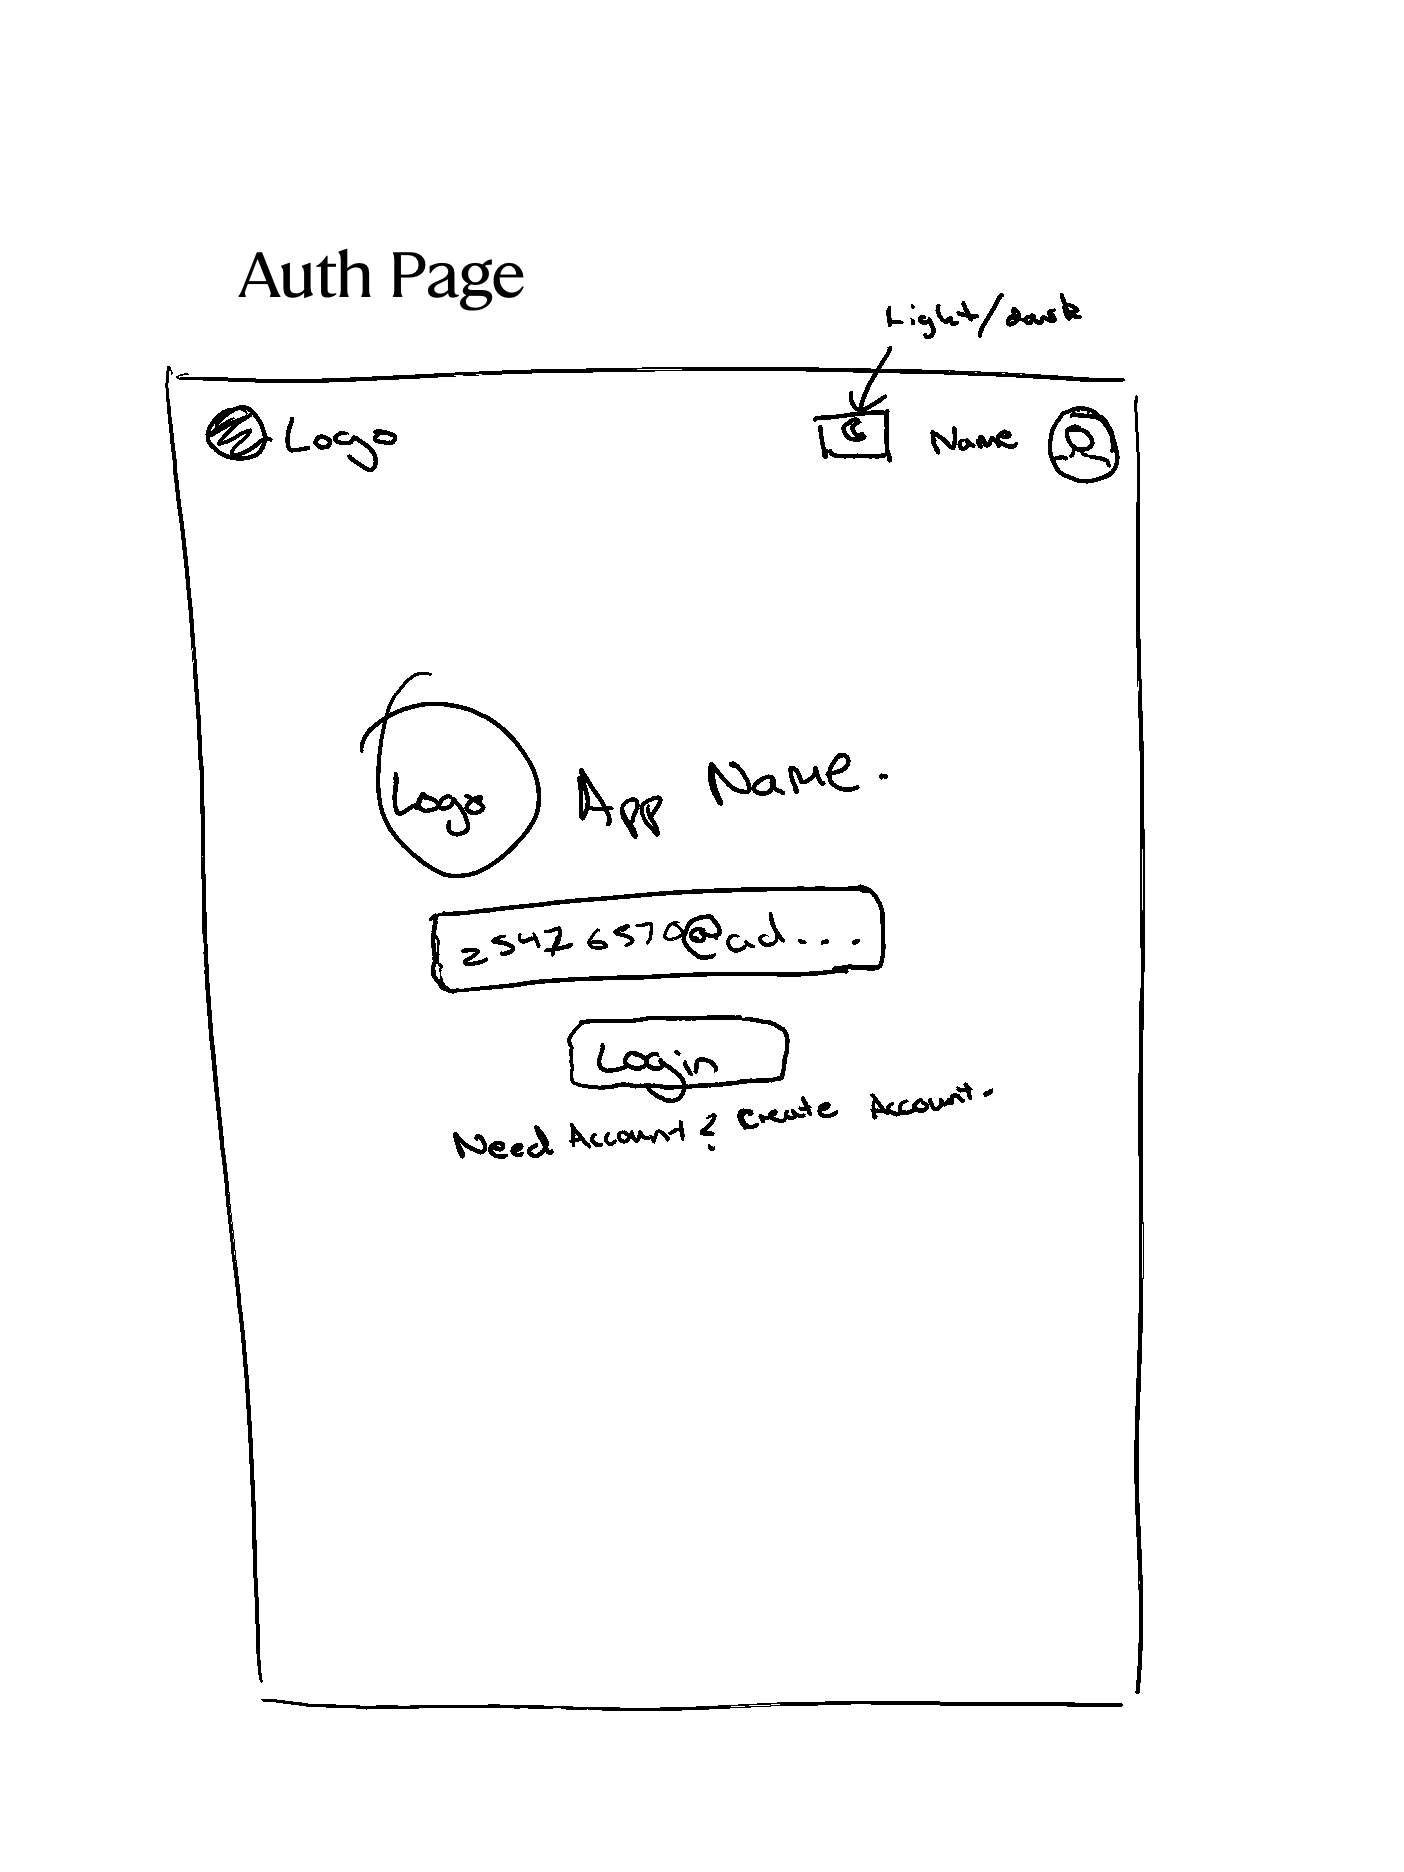 Auth Page
Light/dark
Logo
Name
Logo
App Name.
25476570@ad...
Login
Need Account? Create Account.